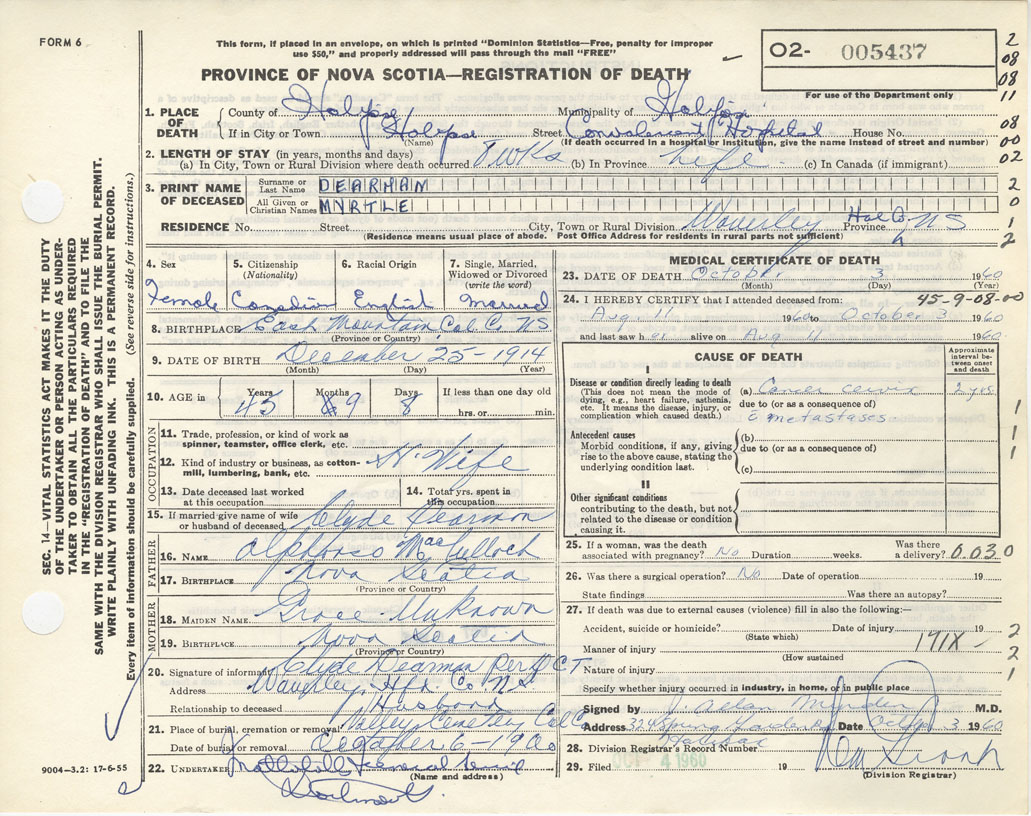 FORM 6
This form, if placed in an envelope, on which is printed "Dominion Statistics—Free, penalty for improper
use $50," and properly addressed will pass through the mail "FREE"
PROVINCE OF NOVA SCOTIA—REGISTRATION OF DEATH
O2- 005437
For use of the Department only
2
08
08
11
08
00
02
2
0
1
2
1. PLACE OF DEATH
County of Halifax Municipality of Halifax
If in City or Town Halifax Street Convalescent Hospital House No.
(Name) (If death occurred in a hospital or institution, give the name instead of street and number)
2. LENGTH OF STAY (in years, months and days)
(a) In City, Town or Rural Division where death occurred 8 wks (b) In Province Life (c) In Canada (if immigrant)
3. PRINT NAME OF DECEASED
Surname or Last Name DEARMAN
All Given or Christian Names MYRTLE
RESIDENCE No. Street City, Town or Rural Division Waverley Province Hal Co NS
(Residence means usual place of abode. Post Office Address for residents in rural parts not sufficient)
4. Sex Female
5. Citizenship (Nationality) Canadian
6. Racial Origin English
7. Single, Married, Widowed or Divorced (write the word) Married
8. BIRTHPLACE East Mountain Col. Co NS
(Province or Country)
9. DATE OF BIRTH December 25-1914
(Month) (Day) (Year)
10. AGE in Years 45 Months 9 Days 8 If less than one day old
hrs. or min.
OCCUPATION
11. Trade, profession, or kind of work as
spinner, teamster, office clerk, etc.
12. Kind of industry or business, as cotton-
mill, lumbering, bank, etc. H'Wife
13. Date deceased last worked
at this occupation
14. Total yrs. spent in
this occupation
15. If married give name of wife
or husband of deceased Clyde Dearman
FATHER
16. NAME Alphonso MacCulloch
17. BIRTHPLACE Nova Scotia
(Province or Country)
MOTHER
18. MAIDEN NAME Grace Unknown
19. BIRTHPLACE Nova Scotia
(Province or Country)
20. Signature of informant Clyde Dearman Per
Address Waverley Hfx. Co. N.S.
Relationship to deceased Husband
21. Place of burial, cremation or removal Valley Cemetery Col Co
Date of burial or removal October 6-1960
22. UNDERTAKER Mattatall Funeral Service
(Name and address)
Dartmouth
MEDICAL CERTIFICATE OF DEATH
23. DATE OF DEATH October 3 1960
(Month) (Day) (Year)
24. I HEREBY CERTIFY that I attended deceased from: 45-9-08-00
Aug. 11 1960 to October 3 1960
and last saw her alive on Aug 11 1960
CAUSE OF DEATH
Approximate interval between onset and death
I
Disease or condition directly leading to death
(This does not mean the mode of
dying, e.g., heart failure, asthenia,
etc. It means the disease, injury, or
complication which caused death.)
(a) Cancer cervix 2 yrs.
due to (or as a consequence of)
metastases
Antecedent causes
Morbid conditions, if any, giving
rise to the above cause, stating the
underlying condition last.
(b)
due to (or as a consequence of)
(c)
II
Other significant conditions
contributing to the death, but not
related to the disease or condition
causing it.
1
1
1
25. If a woman, was the death
associated with pregnancy? No Duration weeks. Was there
a delivery? 0.030
26. Was there a surgical operation? No Date of operation 19
State findings Was there an autopsy?
27. If death was due to external causes (violence) fill in also the following:—
Accident, suicide or homicide? Date of injury 19
(State which)
Manner of injury 171X -
(How sustained
Nature of injury
2
2
1
Specify whether injury occurred in industry, in home, or in public place
Signed by Allan M.D.
Address 324 Spring Garden Rd Date Oct 3 1960
Halifax
28. Division Registrar's Record Number
29. Filed OCT 4 1960 19
(Division Registrar)
SEC. 14—VITAL STATISTICS ACT MAKES IT THE DUTY
OF THE UNDERTAKER OR PERSON ACTING AS UNDER-
TAKER TO OBTAIN ALL THE PARTICULARS REQUIRED
IN THE "REGISTRATION OF DEATH" AND TO FILE THE
SAME WITH THE DIVISION REGISTRAR WHO SHALL ISSUE THE BURIAL PERMIT.
WRITE PLAINLY WITH UNFADING INK. THIS IS A PERMANENT RECORD.
Every item of information should be carefully supplied. (See reverse side for instructions.)
9004—3.2: 17-6-55